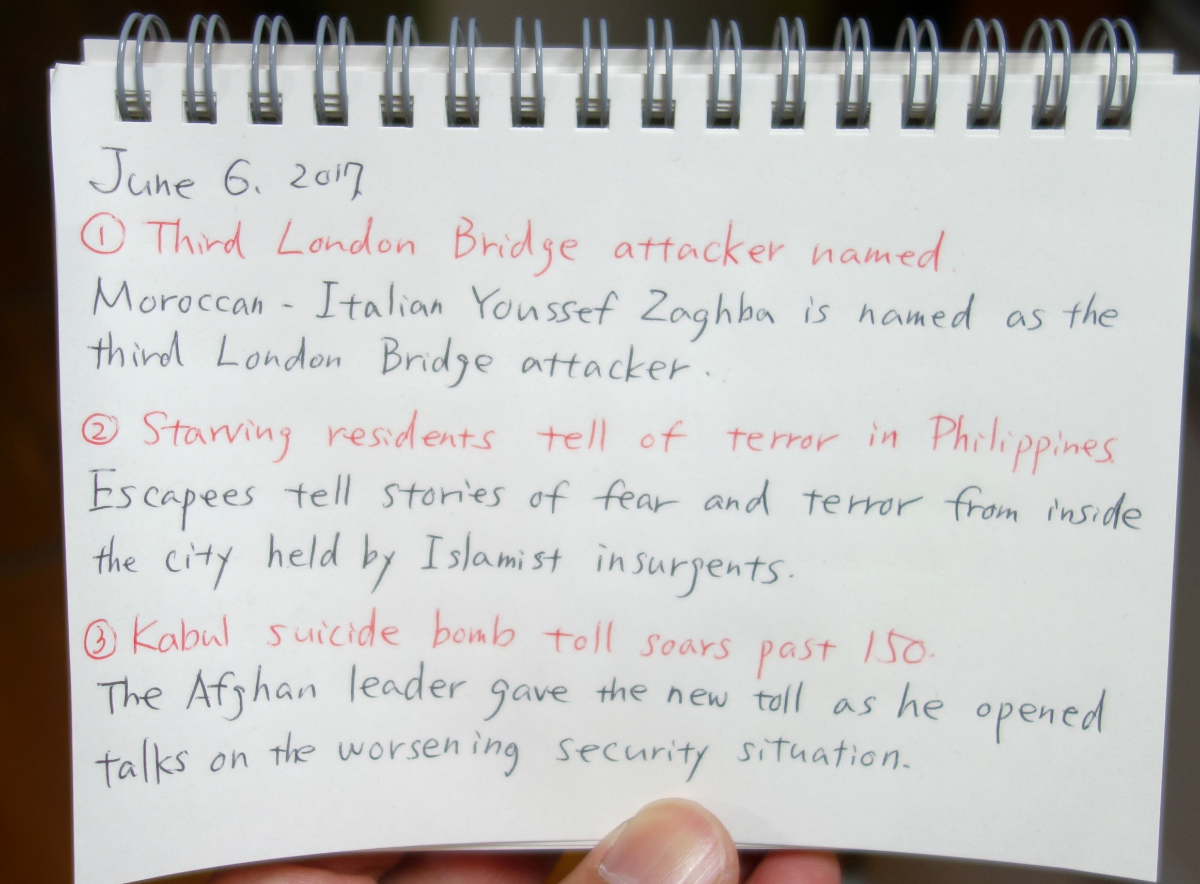 June 6. 2017
① Third London Bridge attacker named.
Moroccan - Italian Youssef Zaghba is named as the
third London Bridge attacker.
② Starving residents tell of terror in Philippines.
Escapees tell stories of fear and terror from inside
the city held by Islamist insurgents.
③ Kabul suicide bomb toll soars past 150.
The Afghan leader gave the new toll as he opened
talks on the worsening security situation.